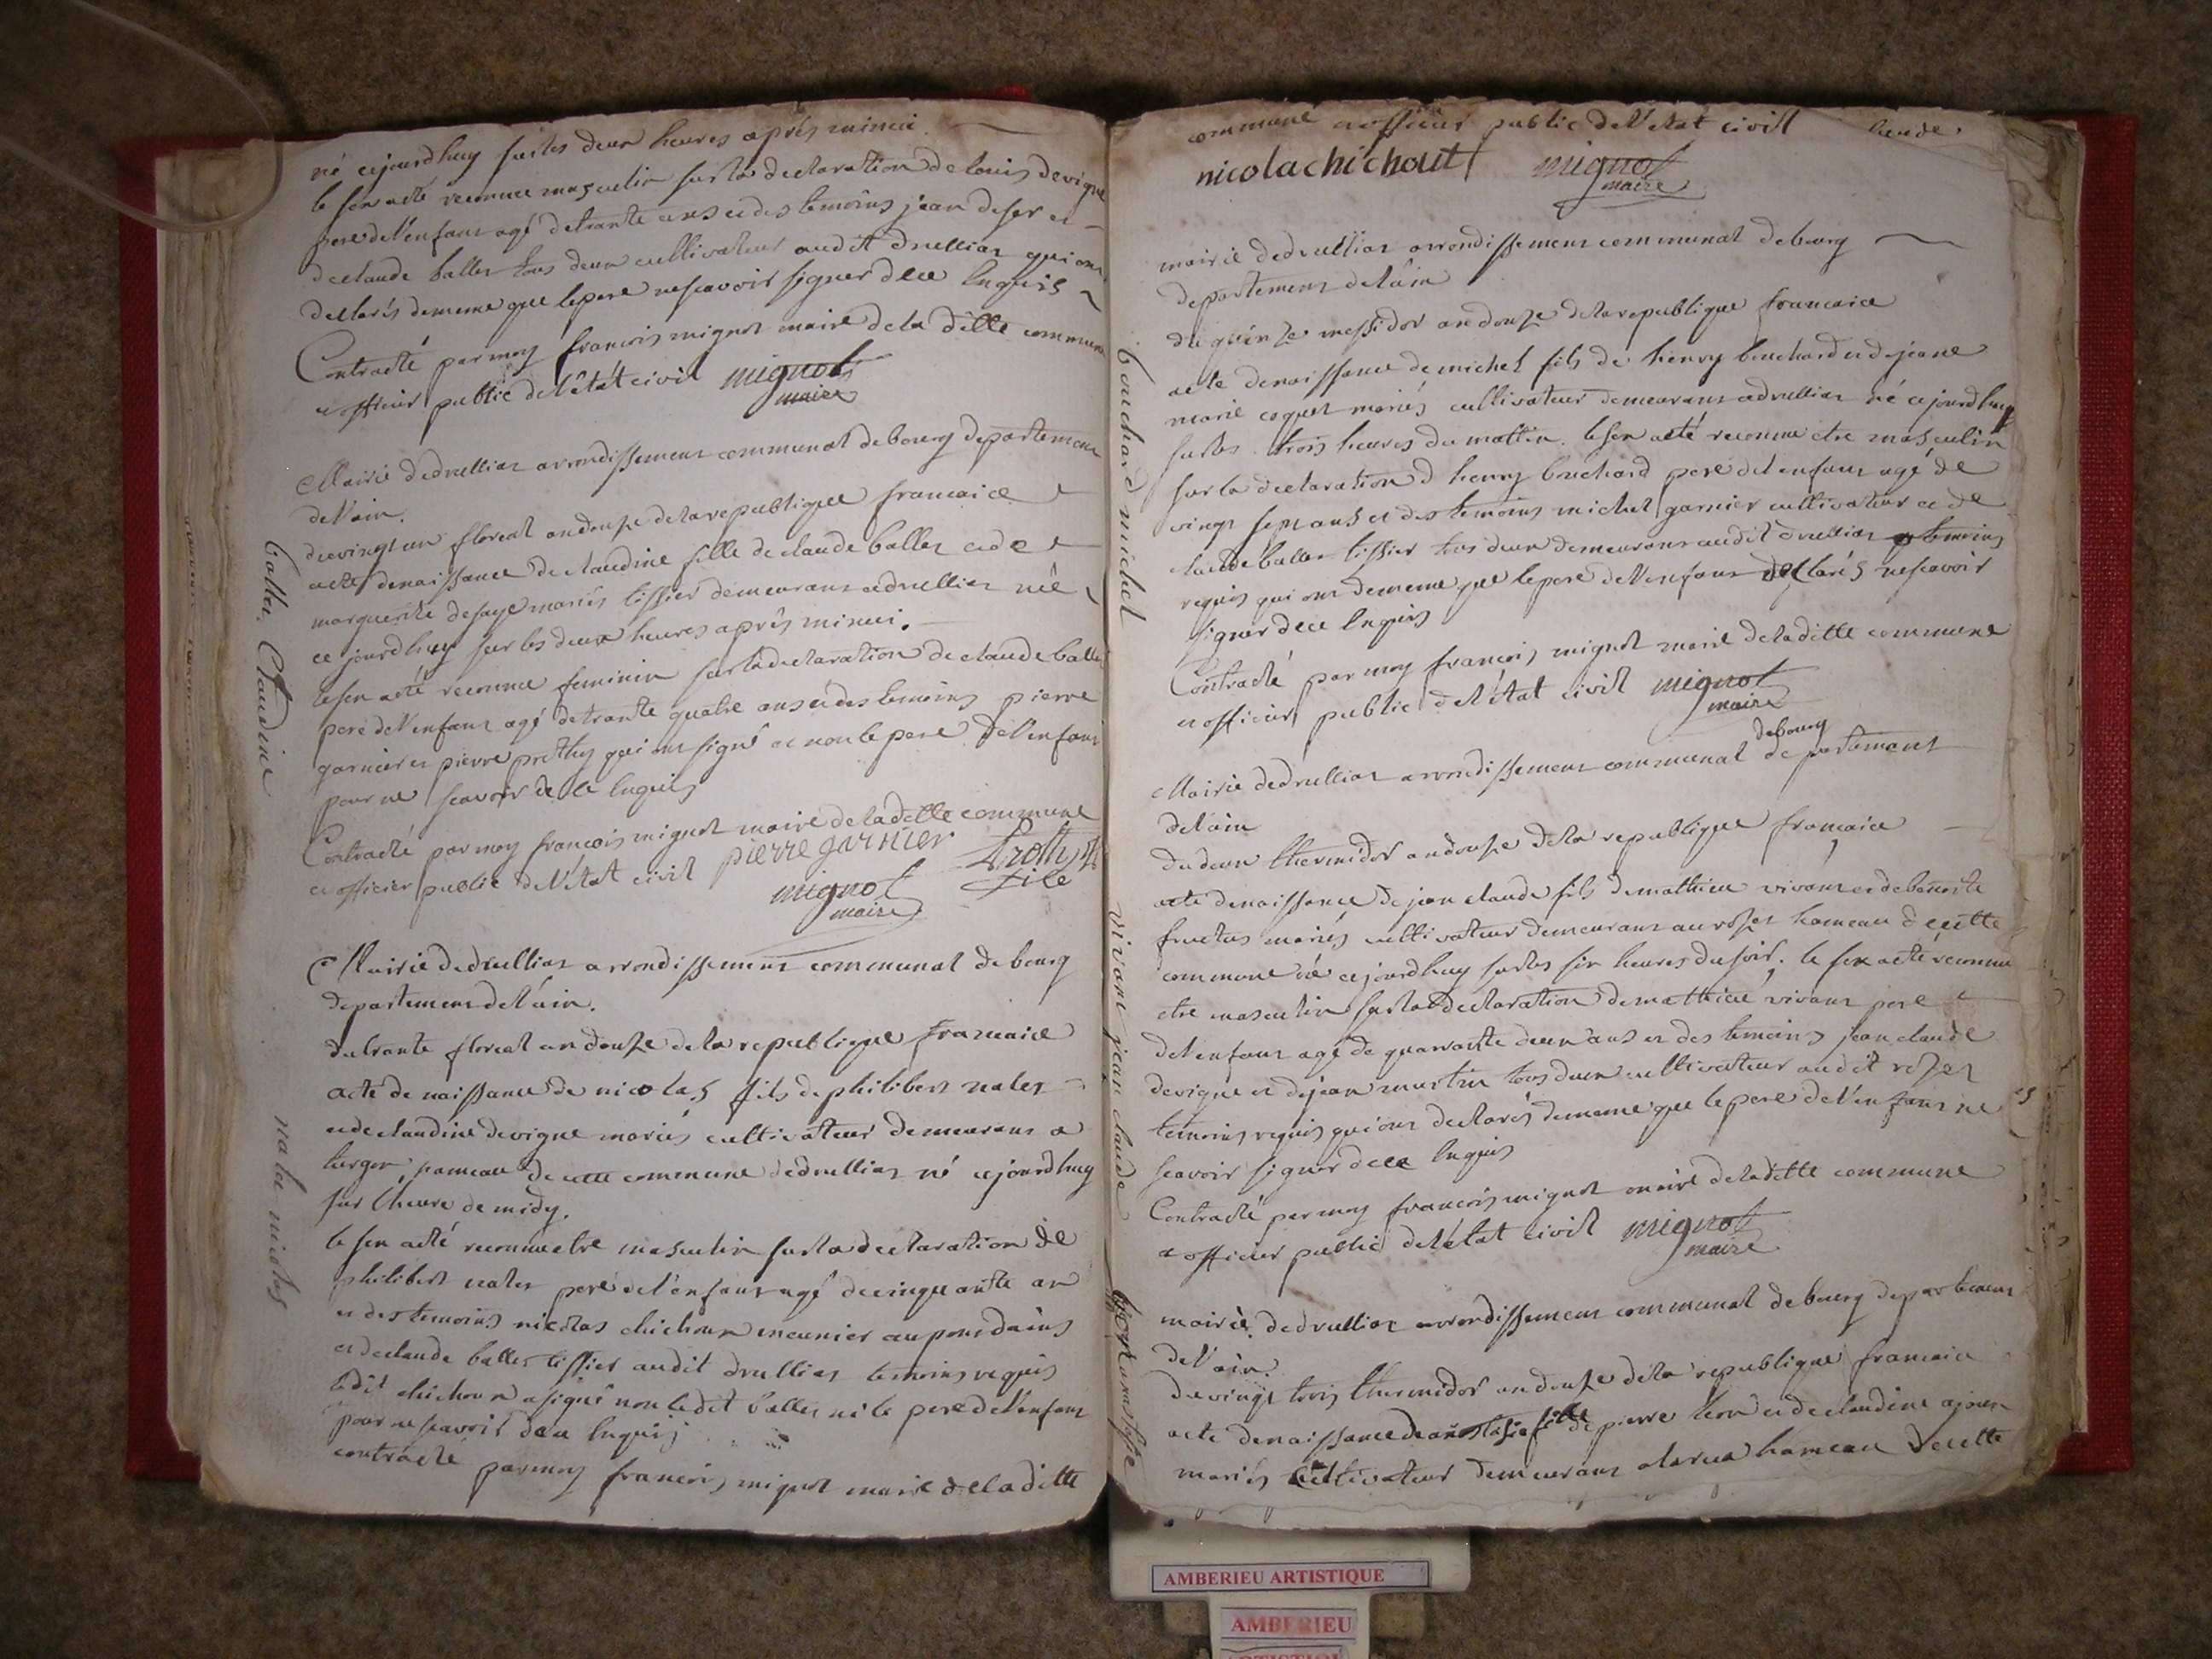 né cejourdhuy sur les deux heures après minuit
le sex acté reconnu masculin sur la declaration de louis devigne
pere de l'enfant agé de trante ans et des temoins jean defer et
de claude ballet tous deux cultivateur audit druillat qui ont
declarés de meme que le pere ne scavoir signer de ce Enquis
Contracté par moy francois mignot maire de la ditte commune
et officier public de l'état civil mignot
maire
Mairie de druillat arrondissement communal de bourg departement
de l'ain.
du vingt un floreal an douze de la republique francaice
acte de naissance de claudine fille de claude ballet et de
marguerite defaye mariés tissier demeurant a druillat née
ce jourdhuy sur les deux heures après minui.
le sex acté reconnu feminin sur la declaration de claude ballet
pere de l'enfant agé de trante quatre ans et des temoins pierre
garnier et pierre prothy qui ont signé et non le pere de l'enfant
pour ne scavoir de ce Enquis
Contracté par moy francois mignot maire de la ditte commune
et officier public de l'état civil pierre garnier
mignot
maire
ballet Claudine
Mairie de druillat arrondissement communal de bourg
departement de l'ain.
du trante floreal an douze de la republique francaice
acte de naissance de nicolas fils de philibert nalet
et de claudine devigne mariés cultivateur demeurant a
hameau de cette commune de druillat né cejourdhuy
sur l'heure de midy.
le sex acté reconnu etre masculin sur la declaration de
philibert nalet pere de l'enfant agé de cinquante an
et des temoins nicolas chichoux meunier au pont dains
et de claude ballet tissier audit druillat temoins requis
ledit chichoux a signé non ledit ballet ni le pere de l'enfant
pour ne scavoir de ce Enquis
contracté par moy francois mignot maire de la ditte
nalet nicolas
commune et officier public de l'état civil
nicolachichout mignot
maire
mairie de druillat arrondissement communal de bourg
departement de l'ain
du quinze messidor an douze de la republique francaice
acte de naissance de michel fils de henry bouchard et de jeane
marie coquet mariés cultivateur demeurant a druillat né cejourdhuy
sur les trois heures du mattin. le sex acté reconnu etre masculin
sur la declaration d henry bouchard pere de l enfant agé de
vingt sept ans et des temoins michel garnier cultivateur et de
claude ballet tissier tous deux demeurant audit druillat temoins
requis qui ont de meme que le pere de l'enfant declarés ne scavoir
signer de ce Enquis
Contracté par moy francois mignot maire de la ditte commune
et officier public de l'état civil mignot
maire
bouchard michel
Mairie de druillat arrondissement communal debourg departement
de l'ain
du deux thermidor an douze de la republique francaice
acte de naissance de jean claude fils de mathieu vivant et de benoite
fructus mariés cultivateur demeurant au rozet hameau de cette
commune né cejourdhuy sur les six heures du soir. le sex acté reconnu
etre masculin sur la declaration de mathieu vivant pere
de l'enfant agé de quarante deux ans et des temoins jean claude
devigne et de jean martin tous deux cultivateur audit rozet
temoins requis qui ont declarés de meme que le pere de l'enfant ne
scavoir signer de ce Enquis
Contracté par moy francois mignot maire de la ditte commune
et officier public de l'état civil mignot
maire
vivant jean claude
mairie de druillat arrondissement communal de bourg departement
de l'ain.
du vingt trois thermidor an douze de la republique francaice
acte de naissance de anastasie fille de pierre et de claudine
mariés cultivateur demeurant hameau de cette
AMBERIEU ARTISTIQUE
AMBERIEU
ARTISTIQUE